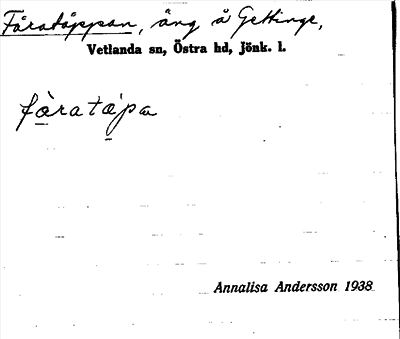 Fåratäppan, äng å Gettinge,
Vetlanda sn, Östra hd, jönk. l.
Annalisa Andersson 1938